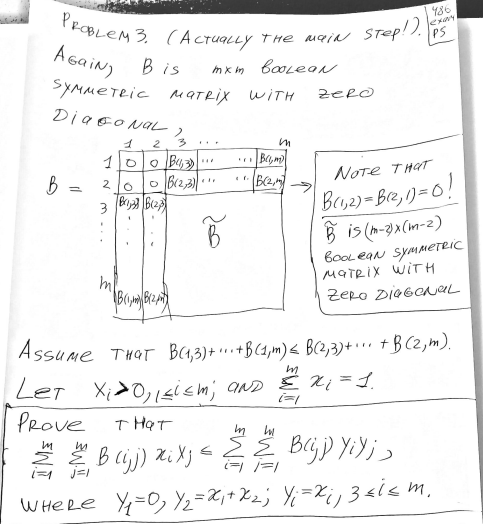 PROBLEM 3. (ACTUALLY THE MAIN STEP!).
486
exam
P5
AGAIN, B IS m×m BOOLEAN
SYMMETRIC MATRIX WITH ZERO
DIAGONAL,
1 2 3 ... m
1 0 0 B(1,3) ... ... B(1,m)
B = 2 0 0 B(2,3) ... ... B(2,m) →
3 B(1,3) B(2,3)
B̃
m B(1,m) B(2,m)
NOTE THAT
B(1,2)=B(2,1)=0!
B̃ IS (m-2)×(m-2)
BOOLEAN SYMMETRIC
MATRIX WITH
ZERO DIAGONAL
ASSUME THAT B(1,3)+...+B(1,m) ≤ B(2,3)+... +B(2,m).
LET Xi>0, 1≤i≤m; AND m∑i=1 xi = 1.
PROVE THAT
m∑i=1 m∑j=1 B(i,j) xi xj ≤ m∑i=1 m∑j=1 B(i,j) Yi Yj,
WHERE Y1=0, Y2=x1+x2; Yi=xi, 3≤i≤m.